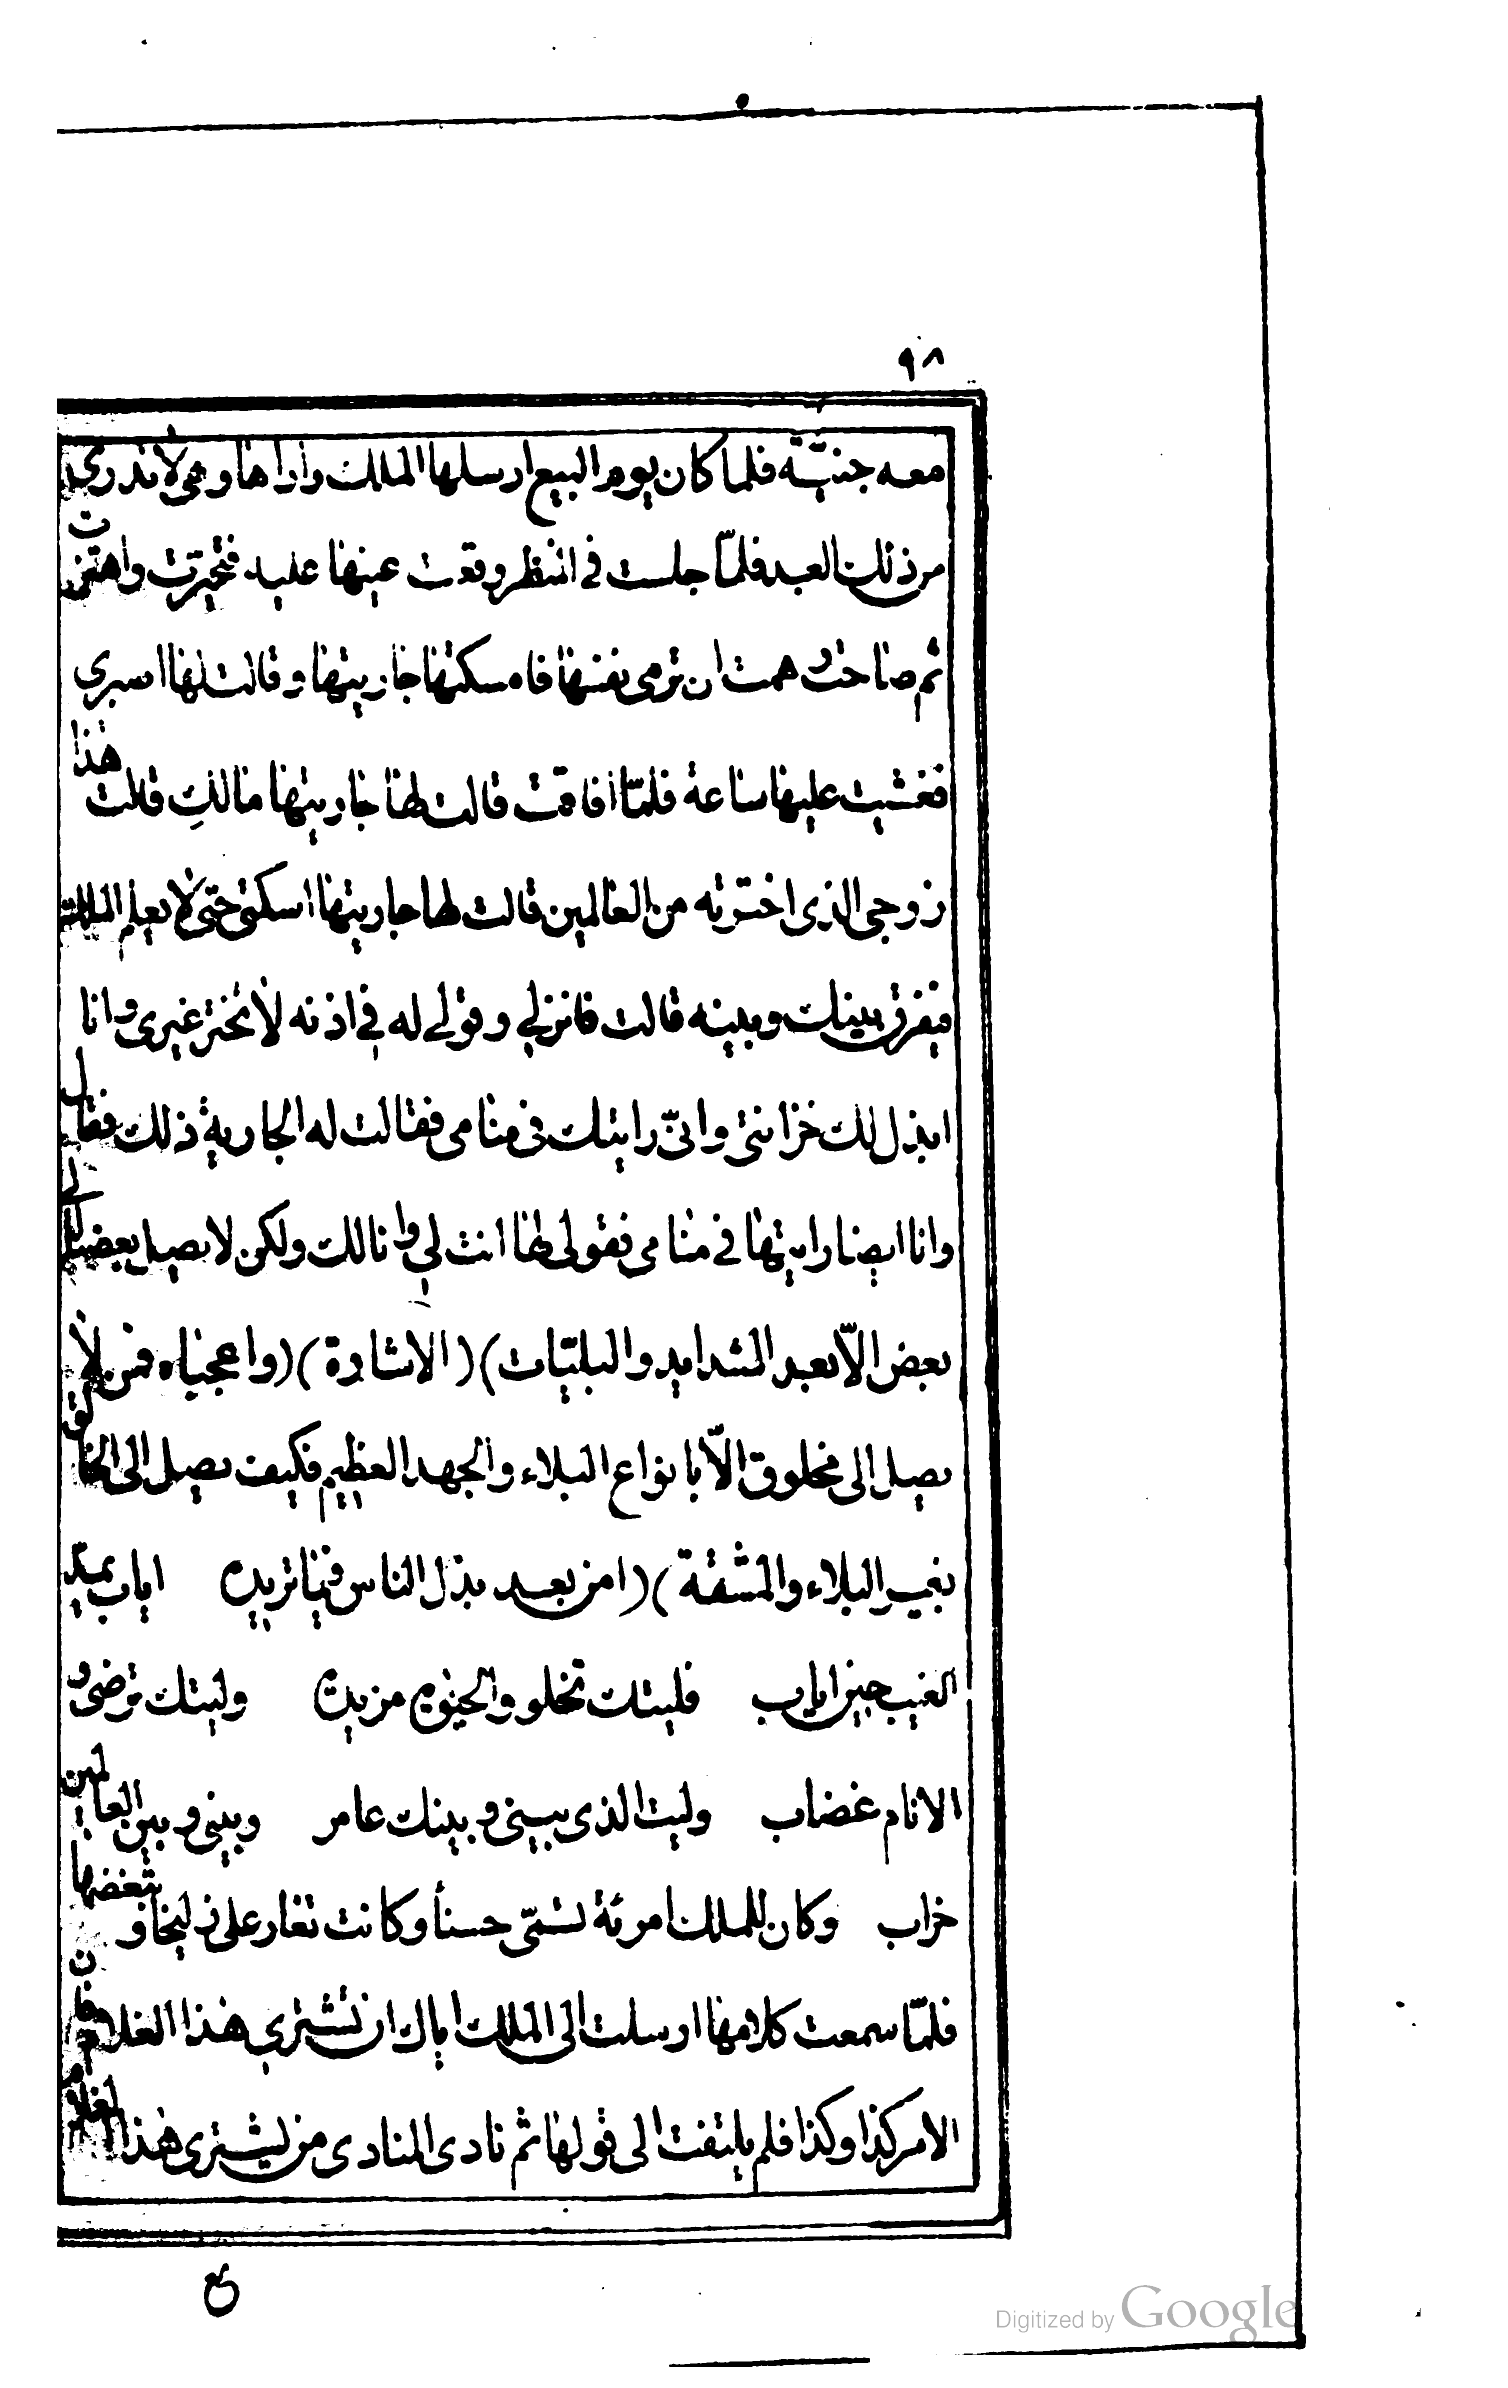 ٩٨
معه جنيّة فلما كان يوم البيع ارسلها الملك واراها وهى لا تدرى
من ذلك العبد فلمّا جلست فى المنظر وقعت عينها عليه فتحيرت واهتزت
ثم صاحت و همت ان ترمى نفسها فامسكتها جاريتها وقالت لها اصبرى
فغشيت عليها ساعة فلمّا افاقت قالت لها جاريتها مالكِ قالت هذا
زوجى الذى اخترته من العالمين قالت لها جاريتها اسكتى حتى لا يعلم الملك
فيفرق بينك وبينه قالت فانزلي وقولے له فى اذنه لا تختر غيرى وانا
ابذل لك خزائنى وانّى رايتك فى منامى فقالت له الجارية ذلك فقال
وانا ايضا رايتها فى منامى فقولى لها انت لى وانا لك ولكن لا يصل بعضنا الى
بعض الاّ بعد الشدايد والبليّات) (الاشارة) (واعجباه فمن لا
يصل الى مخلوق الاّ بانواع البلاء والجهد العظيم فكيف يصل الى الخالق
بغير البلاء والمشقة) (امن بعد بذل الناس فيما تريده اياب
الغيب حين اياب فليتك تحلو والحيوة مريرة وليتك ترضى و
الانام غضاب وليت الذى بينى و بينك عامر وبينى و بين العالمين
خراب وكان للملك امرئة تسمّى حسناً وكانت تغار على زليخا و تبغضها
فلمّا سمعت كلامها ارسلت الى الملك اياك ان تشترى هذا الغلام فان
الامر كذا وكذا فلم يلتفت الى قولها ثم نادى المنادى من يشترى هذا الغلام
Digitized by Google